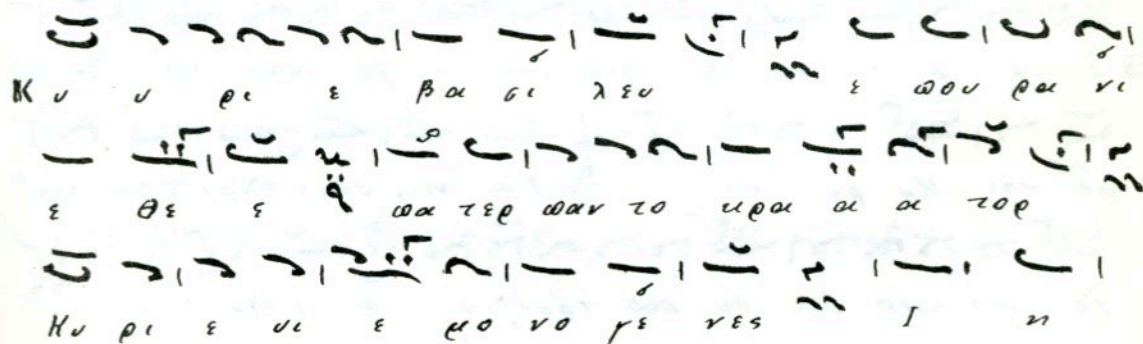 Κυ υ ρι ε βα σι λευ ε που ρα νι
ε Θε ε πα τερ παν το κρα α α τορ
Κυ ρι ε υι ε μο νο γε νες Ι η